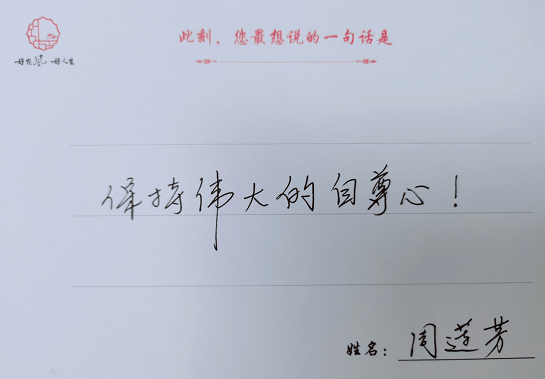 此刻，您最想说的一句话是
好家风 好人生
保持伟大的自尊心！
姓名：周莲芳